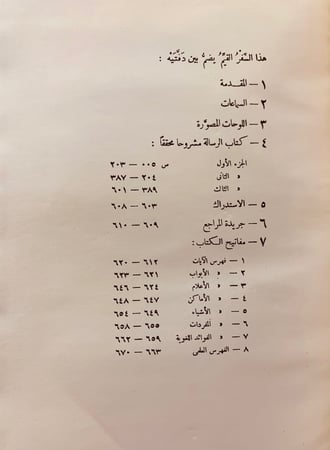 هذا السِّفْرُ القيِّمُ يضمُّ بين دَفَّتَيْه :
١ — المقدمة
٢ — السماعات
٣ — اللوحات المصوَّرة
٤ — كتاب الرسالة مشروحا محققاً :
الجزء الأول س ٠٠٥ — ٢٠٣
» الثانى ٢٠٤ — ٣٨٧
» الثالث ٣٨٩ — ٦٠١
٥ — الاستدراك ٦٠٣ — ٦٠٨
٦ — جريدة المراجع ٦٠٩ — ٦١٠
٧ — مفاتيح الكتاب :
١ — فهرس الآيات ٦١٢ — ٦٢٠
٢ — » الأبواب ٦٢١ — ٦٢٣
٣ — » الأعلام ٦٢٤ — ٦٤٦
٤ — » الأماكن ٦٤٧ — ٦٤٨
٥ — » الأشياء ٦٤٩ — ٦٥٤
٦ — » المفردات ٦٥٥ — ٦٥٨
٧ — » الفوائد اللغوية ٦٥٩ — ٦٦٢
٨ — الفهرس العلمى ٦٦٣ — ٦٧٠